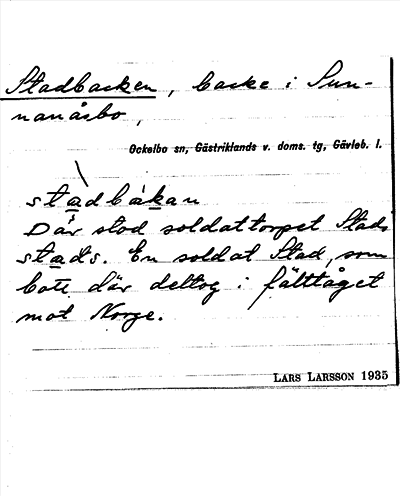 Stadbacken, backe i Sun-
nanåsbo,
Ockelbo sn, Gästriklands v. doms. tg, Gävleb. l.
stadbákan
Där stod soldattorpet Stads
stads. En soldat Stad, som
bott där deltog i fälttåget
mot Norge.
LARS LARSSON 1935